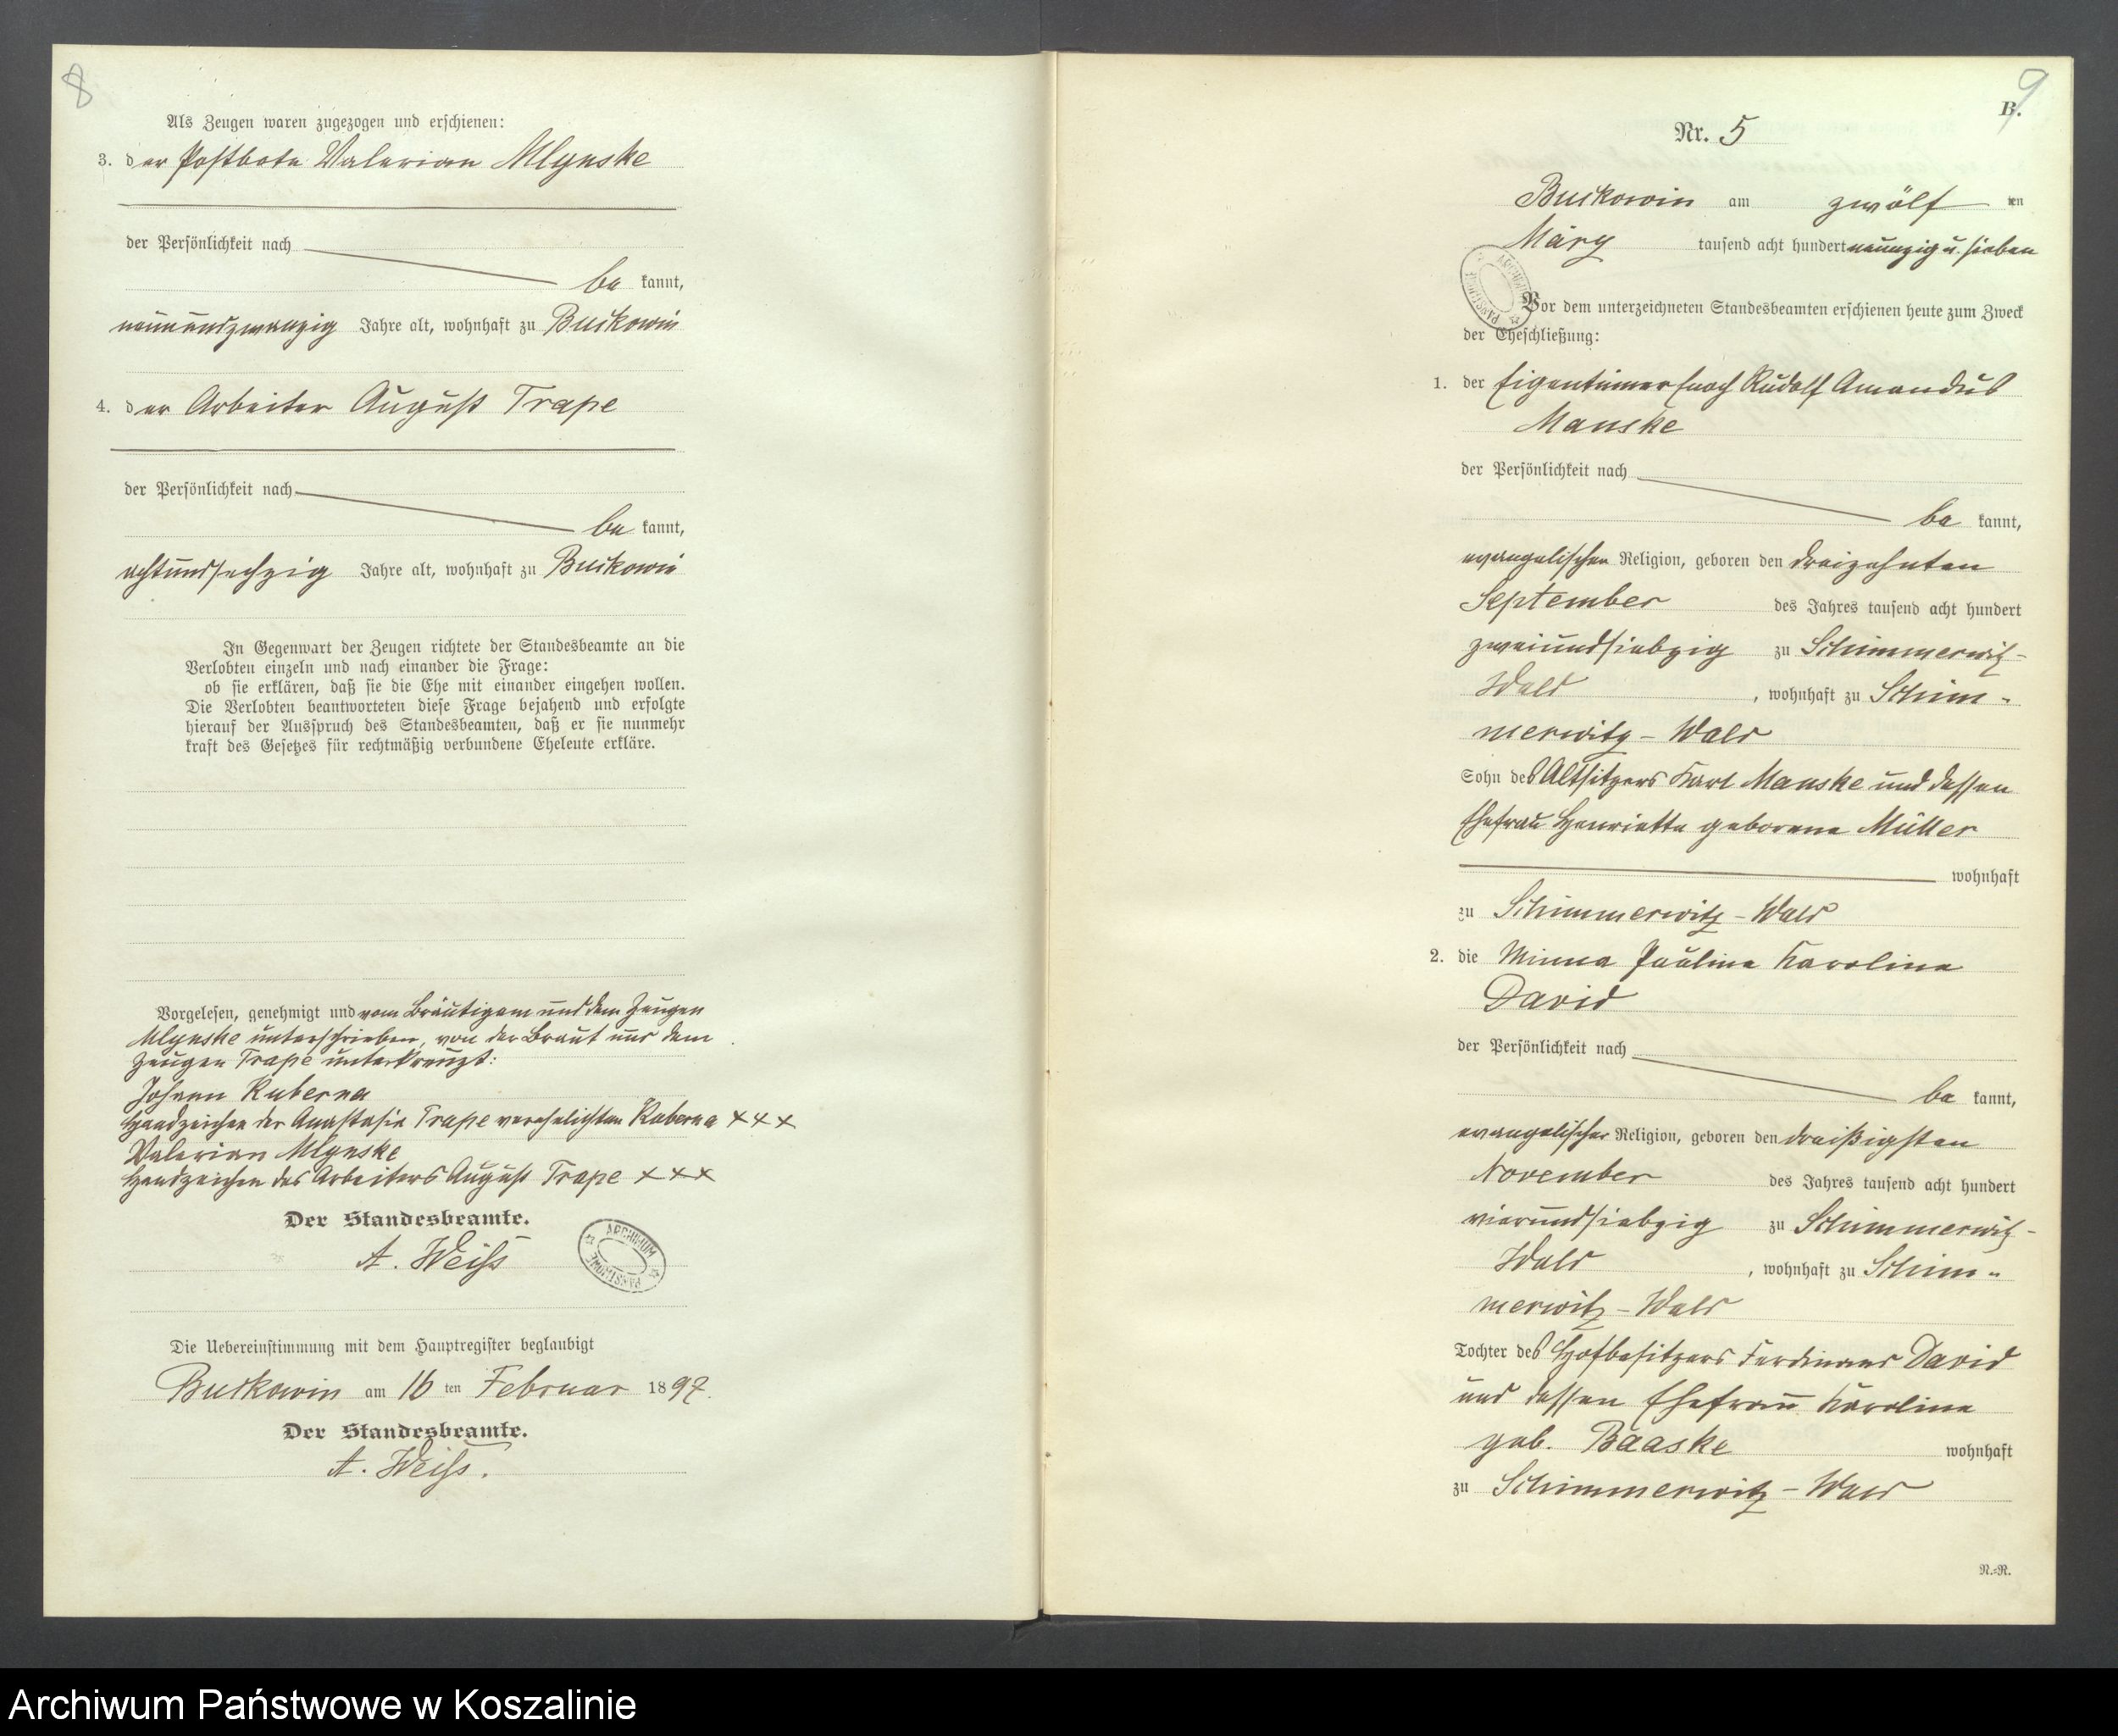 8
Als Zeugen waren zugezogen und erschienen:
3. der Postbote Valerian Mlynske
der Persönlichkeit nach
be kannt,
neunundzwanzig Jahre alt, wohnhaft zu Buckowin
4. der Arbeiter August Trape
der Persönlichkeit nach
be kannt,
achtundsechzig Jahre alt, wohnhaft zu Buckowin
In Gegenwart der Zeugen richtete der Standesbeamte an die
Verlobten einzeln und nach einander die Frage:
ob sie erklären, daß sie die Ehe mit einander eingehen wollen.
Die Verlobten beantworteten diese Frage bejahend und erfolgte
hierauf der Ausspruch des Standesbeamten, daß er sie nunmehr
kraft des Gesetzes für rechtmäßig verbundene Eheleute erkläre.
Vorgelesen, genehmigt und vom Bräutigam und dem Zeugen
Mlynske unterschrieben, von der Braut und dem
Zeugen Trape unterkreuzt:
Johann Kuberna
Handzeichen der Anastasia Trape verehelichten Kuberna xxx
Valerian Mlynske
Handzeichen des Arbeiters August Trape xxx
Der Standesbeamte.
A. Weiss
ARCHIWUM PAŃSTWOWE
Die Uebereinstimmung mit dem Hauptregister beglaubigt
Buckowin am 16 ten Februar 1897.
Der Standesbeamte.
A. Weiss.
9
B.
Nr. 5
Buckowin am zwölf ten
März tausend acht hundert neunzig u. sieben
ARCHIWUM PAŃSTWOWE
Vor dem unterzeichneten Standesbeamten erschienen heute zum Zweck
der Eheschließung:
1. der Eigentümersohn Rudolf Amandus
Manske
der Persönlichkeit nach
be kannt,
evangelischer Religion, geboren den dreizehnten
September des Jahres tausend acht hundert
zweiundsiebzig zu Schimmerwitz-
Wald, wohnhaft zu Schim-
merwitz-Wald
Sohn des Altsitzers Karl Manske und dessen
Ehefrau Henriette geborene Müller
wohnhaft
zu Schimmerwitz-Wald
2. die Minna Pauline Karoline
David
der Persönlichkeit nach
be kannt,
evangelischer Religion, geboren den dreißigsten
November des Jahres tausend acht hundert
vierundsiebzig zu Schimmerwitz-
Wald, wohnhaft zu Schim-
merwitz-Wald
Tochter des Hofbesitzers Ferdinand David
und dessen Ehefrau Karoline
geb. Baaske wohnhaft
zu Schimmerwitz-Wald
N.-R.
Archiwum Państwowe w Koszalinie